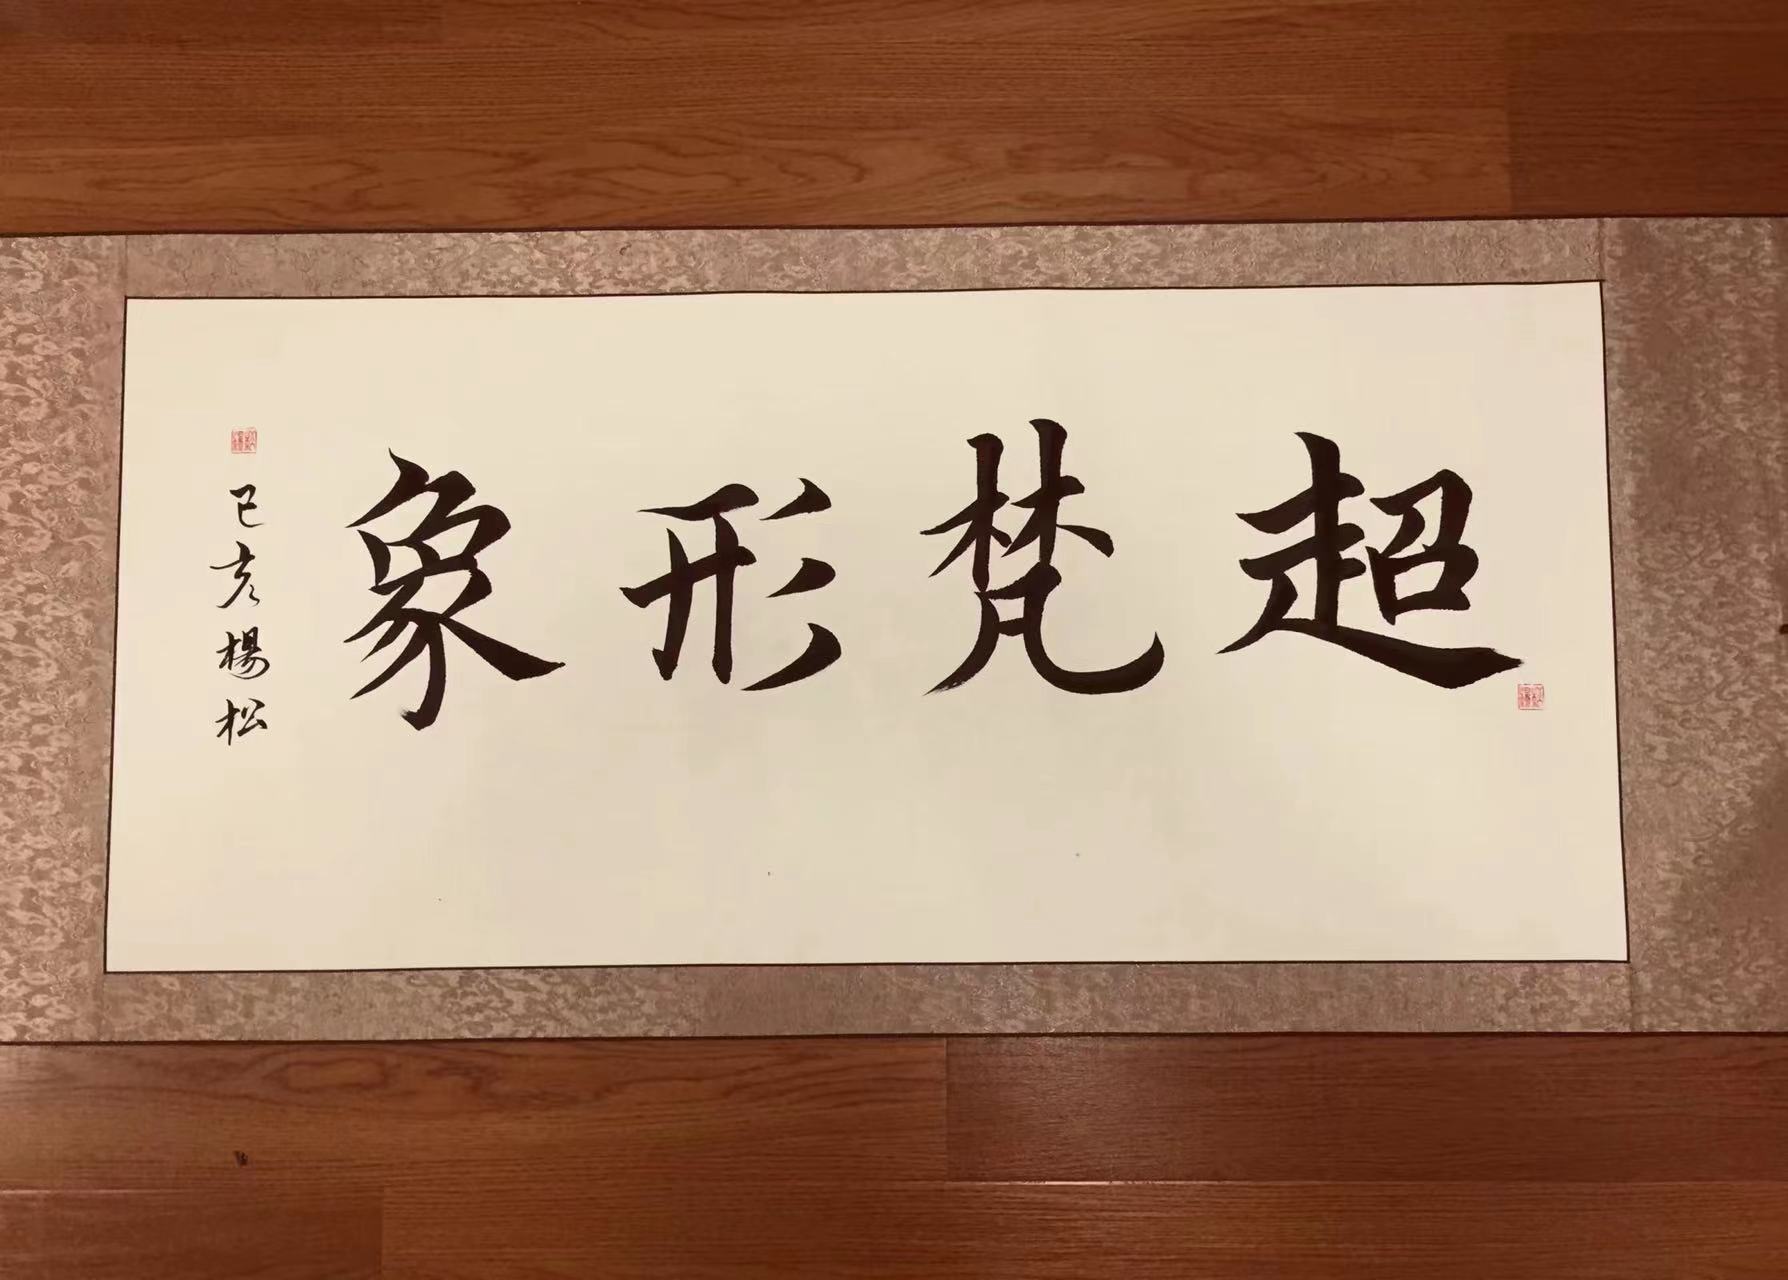 超梵形象
己亥楊松